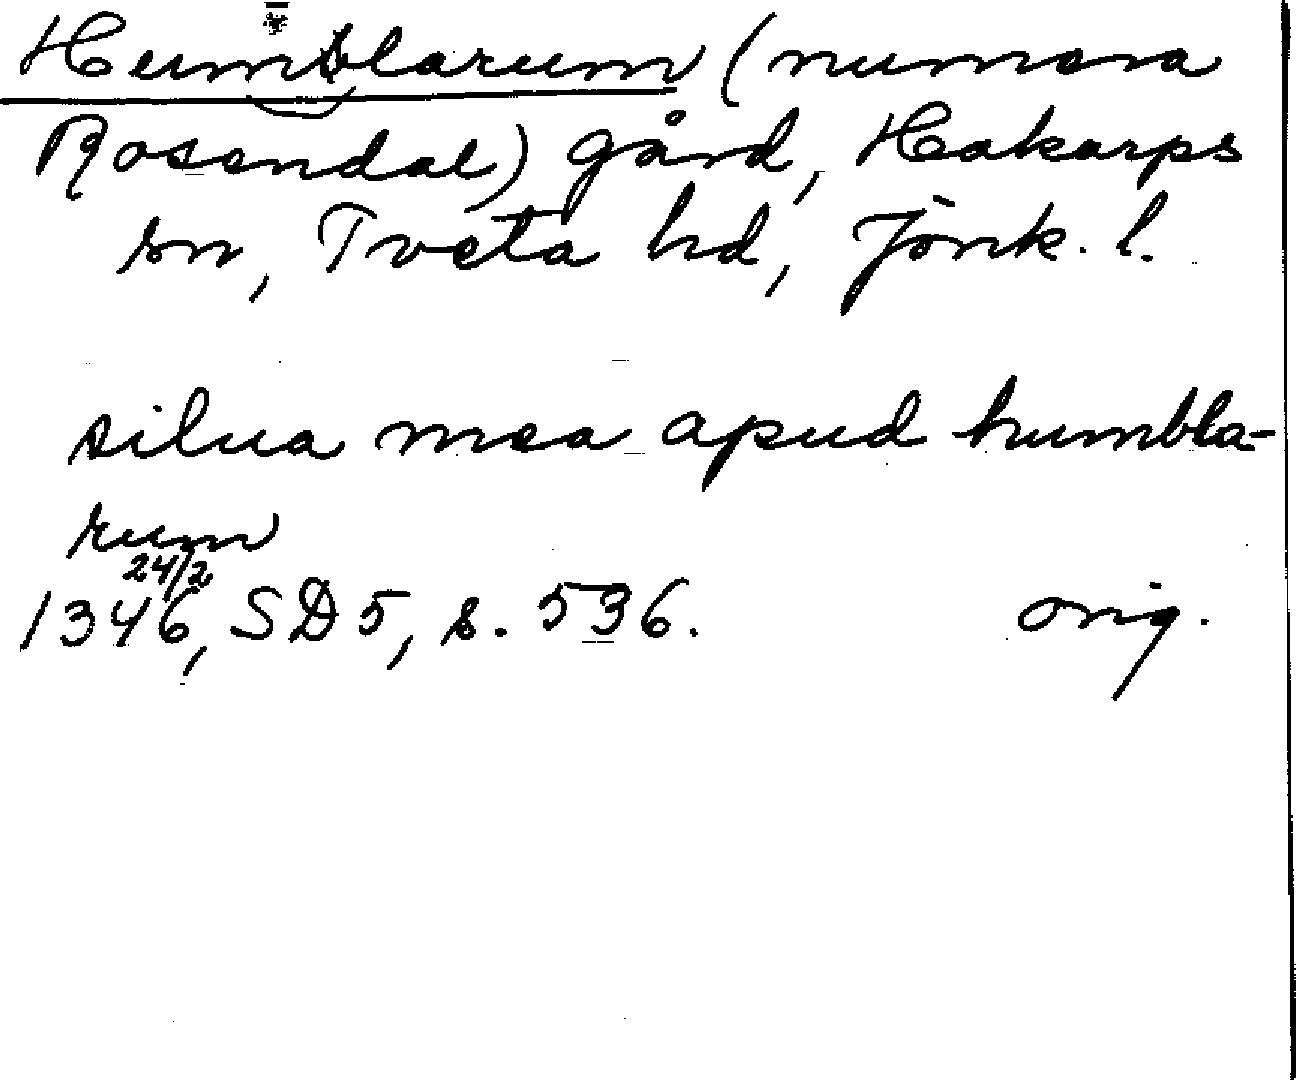 Humblarum (numera
Rosendal) gård, Hakarps
sn, Tveta hd, Jönk. l.
silua mea apud humbla-
rum
24/2
1346, SD 5, s. 536. orig.